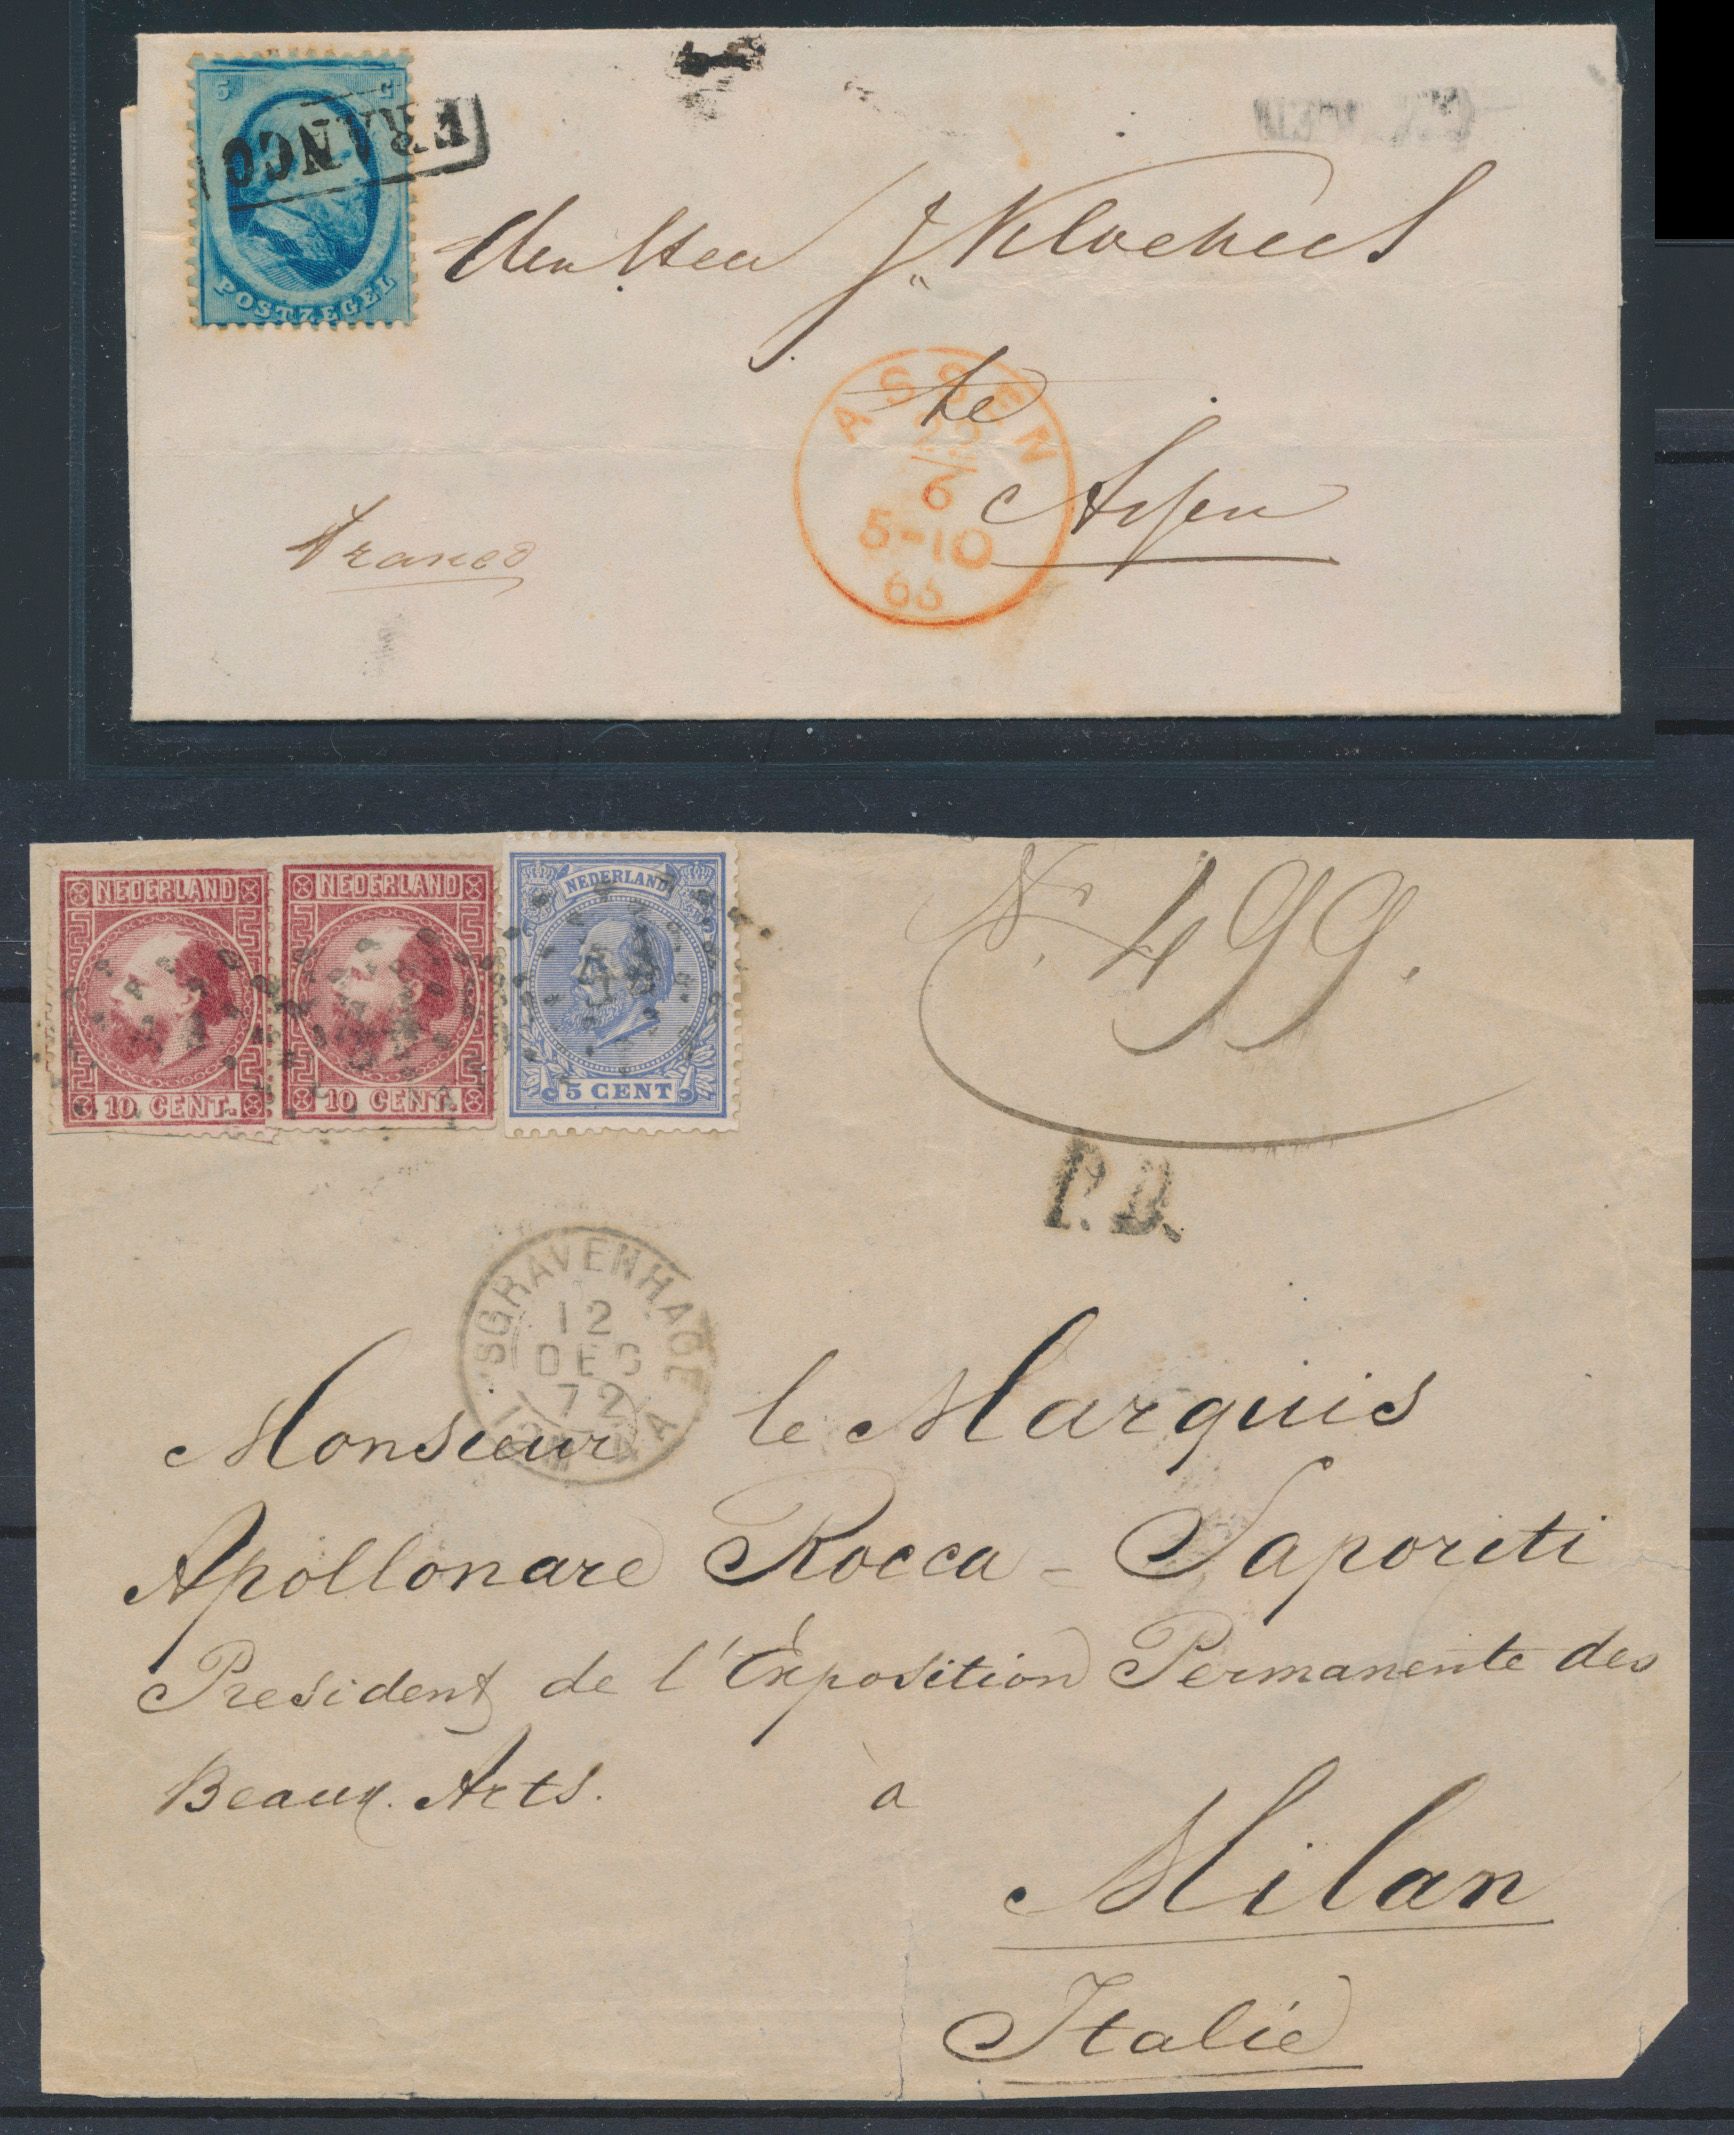 5
FRANCO
POSTZEGEL
te
ASSEN
22
6
5-10
Assen
Franco
NEDERLAND
10 CENT.
NEDERLAND
10 CENT.
NEDERLAND
5 CENT
44
No. 499.
P.D.
'SGRAVENHAGE
12
DEC
72
12M-4A
Monsieur le Marquis
Apollonare Rocca-Saporiti
President de l'Exposition Permanente des
Beaux. Arts. à
Milan
Italie